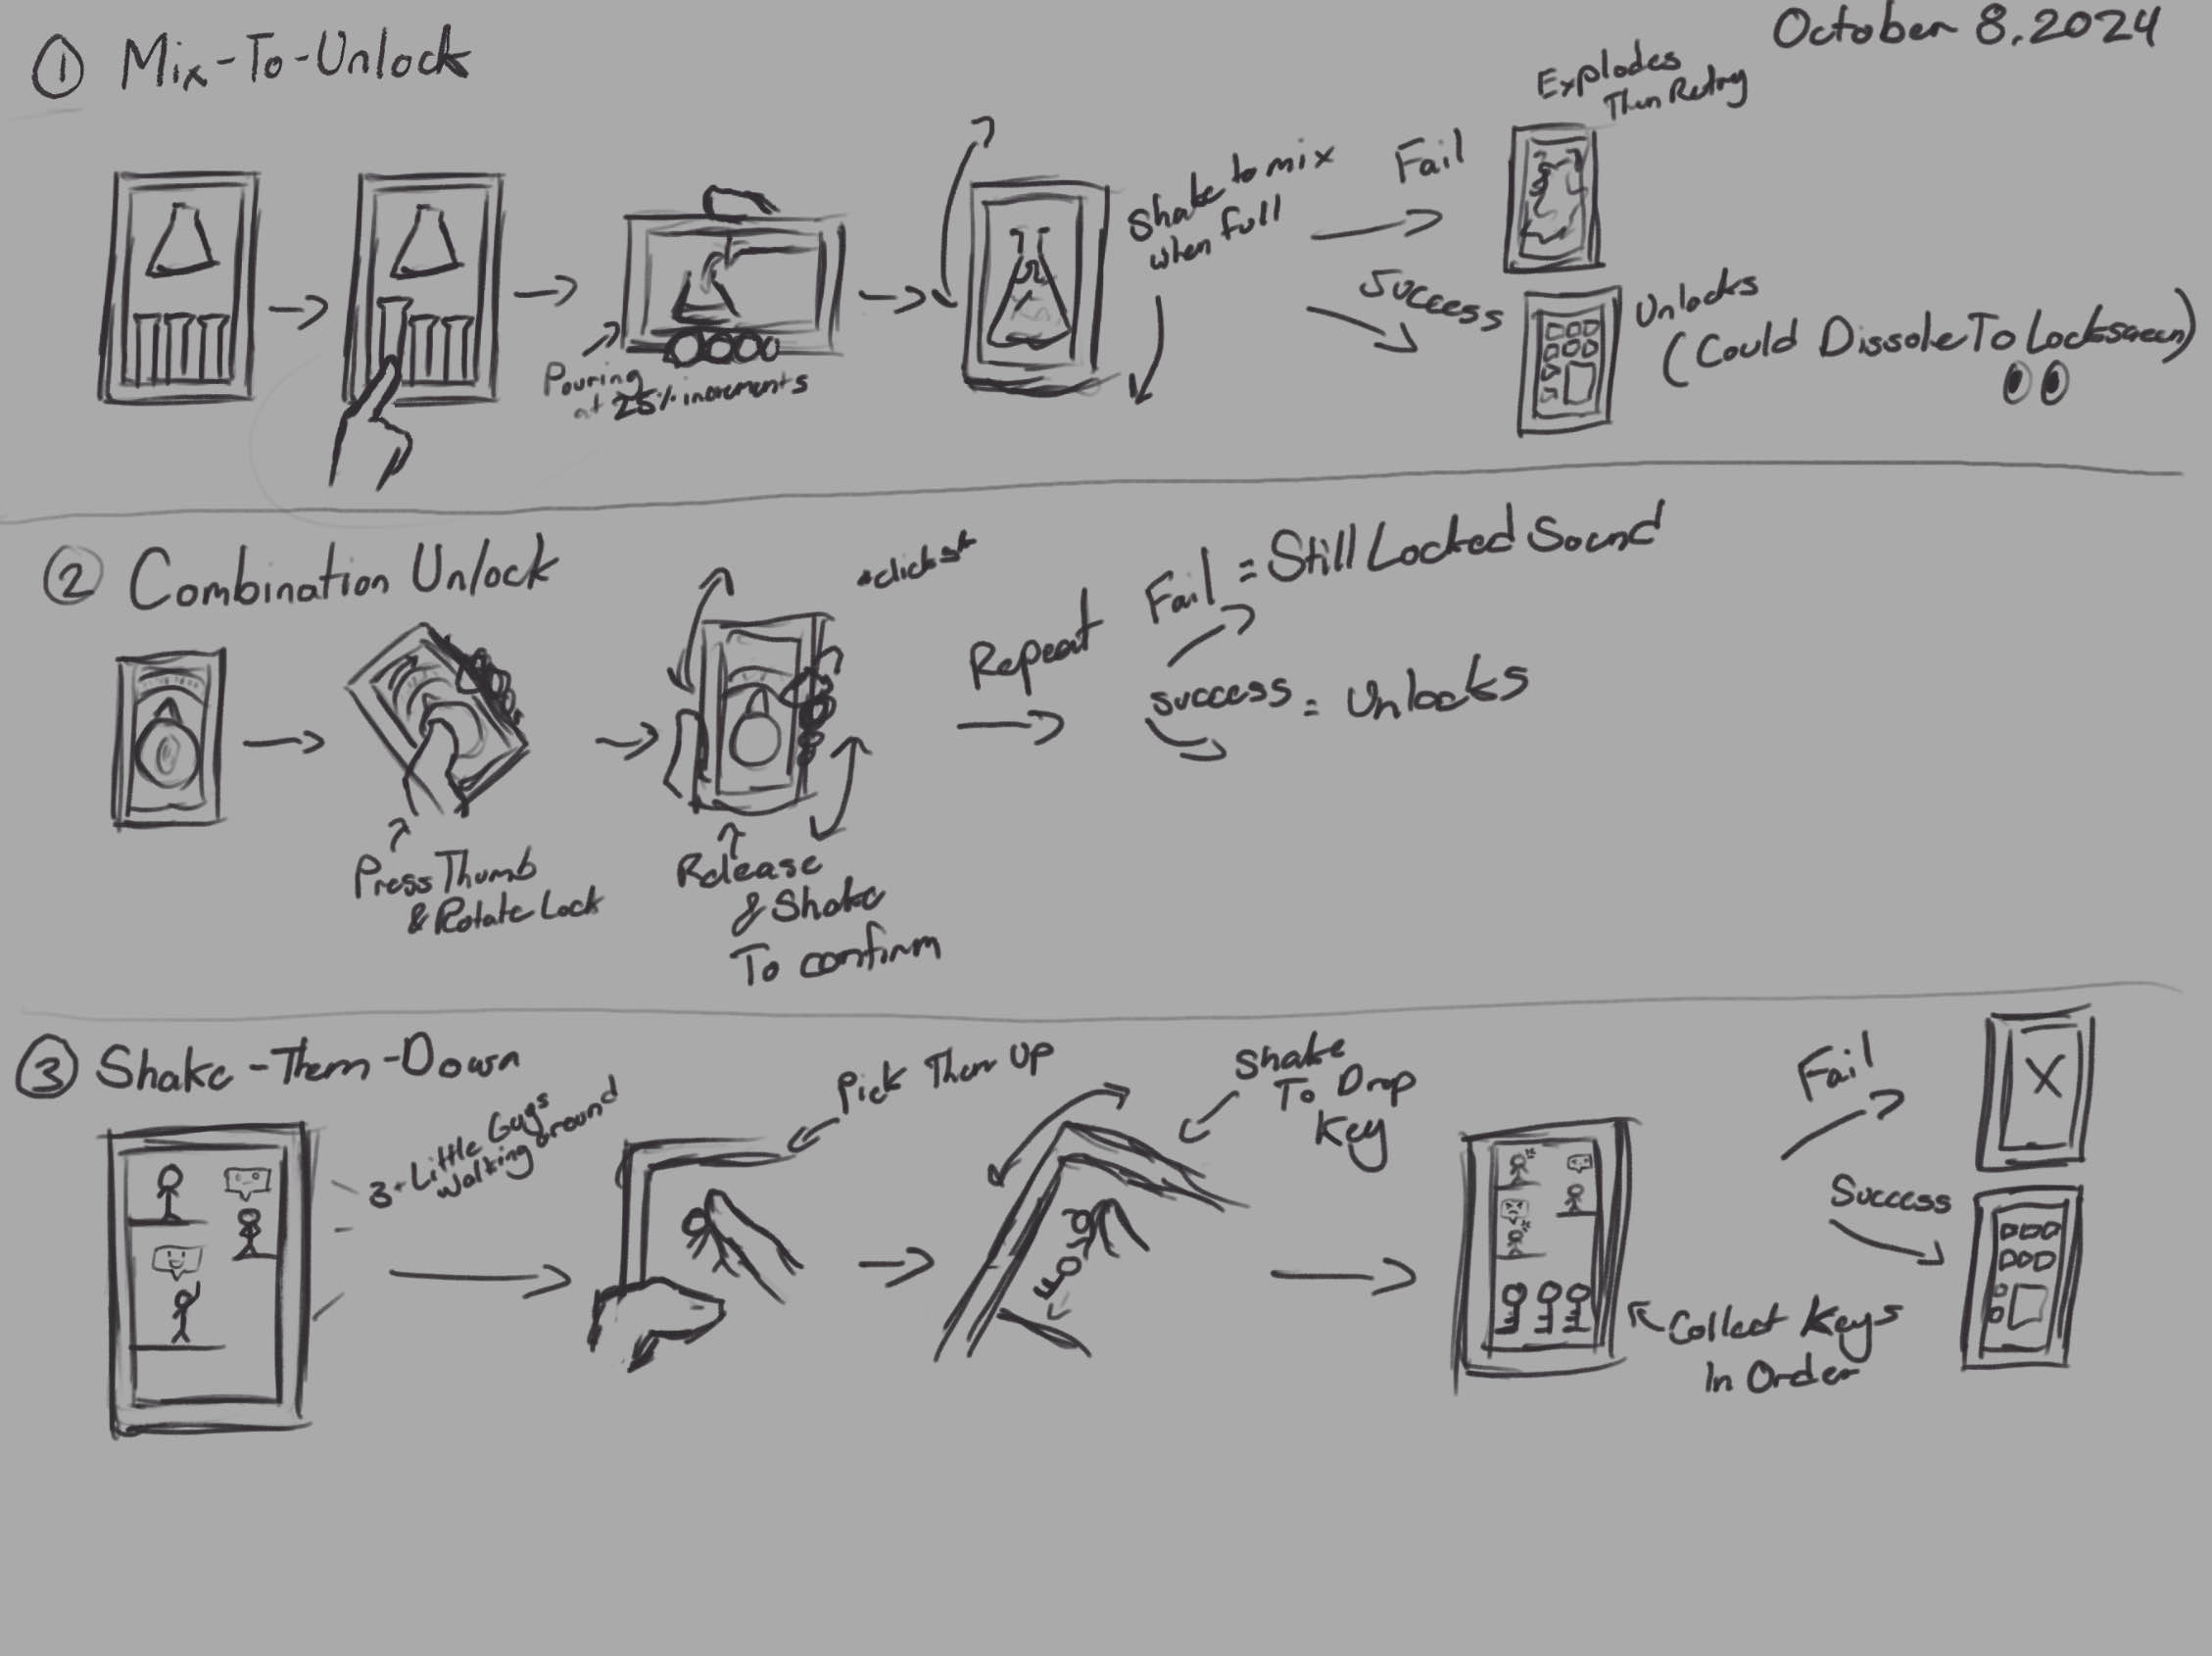 October 8, 2024
① Mix-To-Unlock
Pouring
at 25% increments
Shake to mix
when full
Fail
Explodes
Then Retry
Success
Unlocks
(Could Dissole To Lockscreen)
② Combination Unlock
Press Thumb
& Rotate Lock
*click*
Release
& Shake
To confirm
Repeat
Fail = Still Locked Sound
success = Unlocks
③ Shake-Them-Down
3 Little Guys
Walking around
Pick Them Up
Shake
To Drop
Key
Collect Keys
In Order
Fail
X
Success